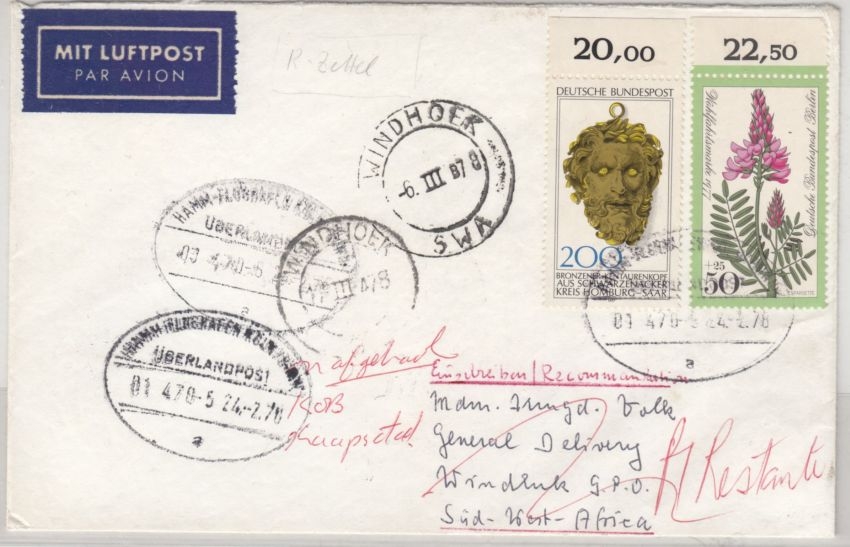 MIT LUFTPOST
PAR AVION
R-Zettel
20,00
22,50
DEUTSCHE BUNDESPOST
200
BRONZENER KENTAURENKOPF
AUS SCHWARZENACKER
KREIS HOMBURG-SAAR
Wohlfahrtsmarke 1977
Deutsche Bundespost Berlin
+25
50
ESPARSETTE
WINDHOEK
-6. III 1978
SWA
HAMM-FLUGHAFEN KÖLN
ÜBERLANDPOST
a
WINDHOEK
III 1978
HAMM-FLUGHAFEN KÖLN/BONN
ÜBERLANDPOST
01 470-5 24.-2.78
a
01 470-5 24.-2.78
a
Kaapstad.
Einschreiben/Recommandation
Mdm. Irmgd. Volk
General Delivery
Windhuk G.P.O.
Süd-West-Africa
Restante